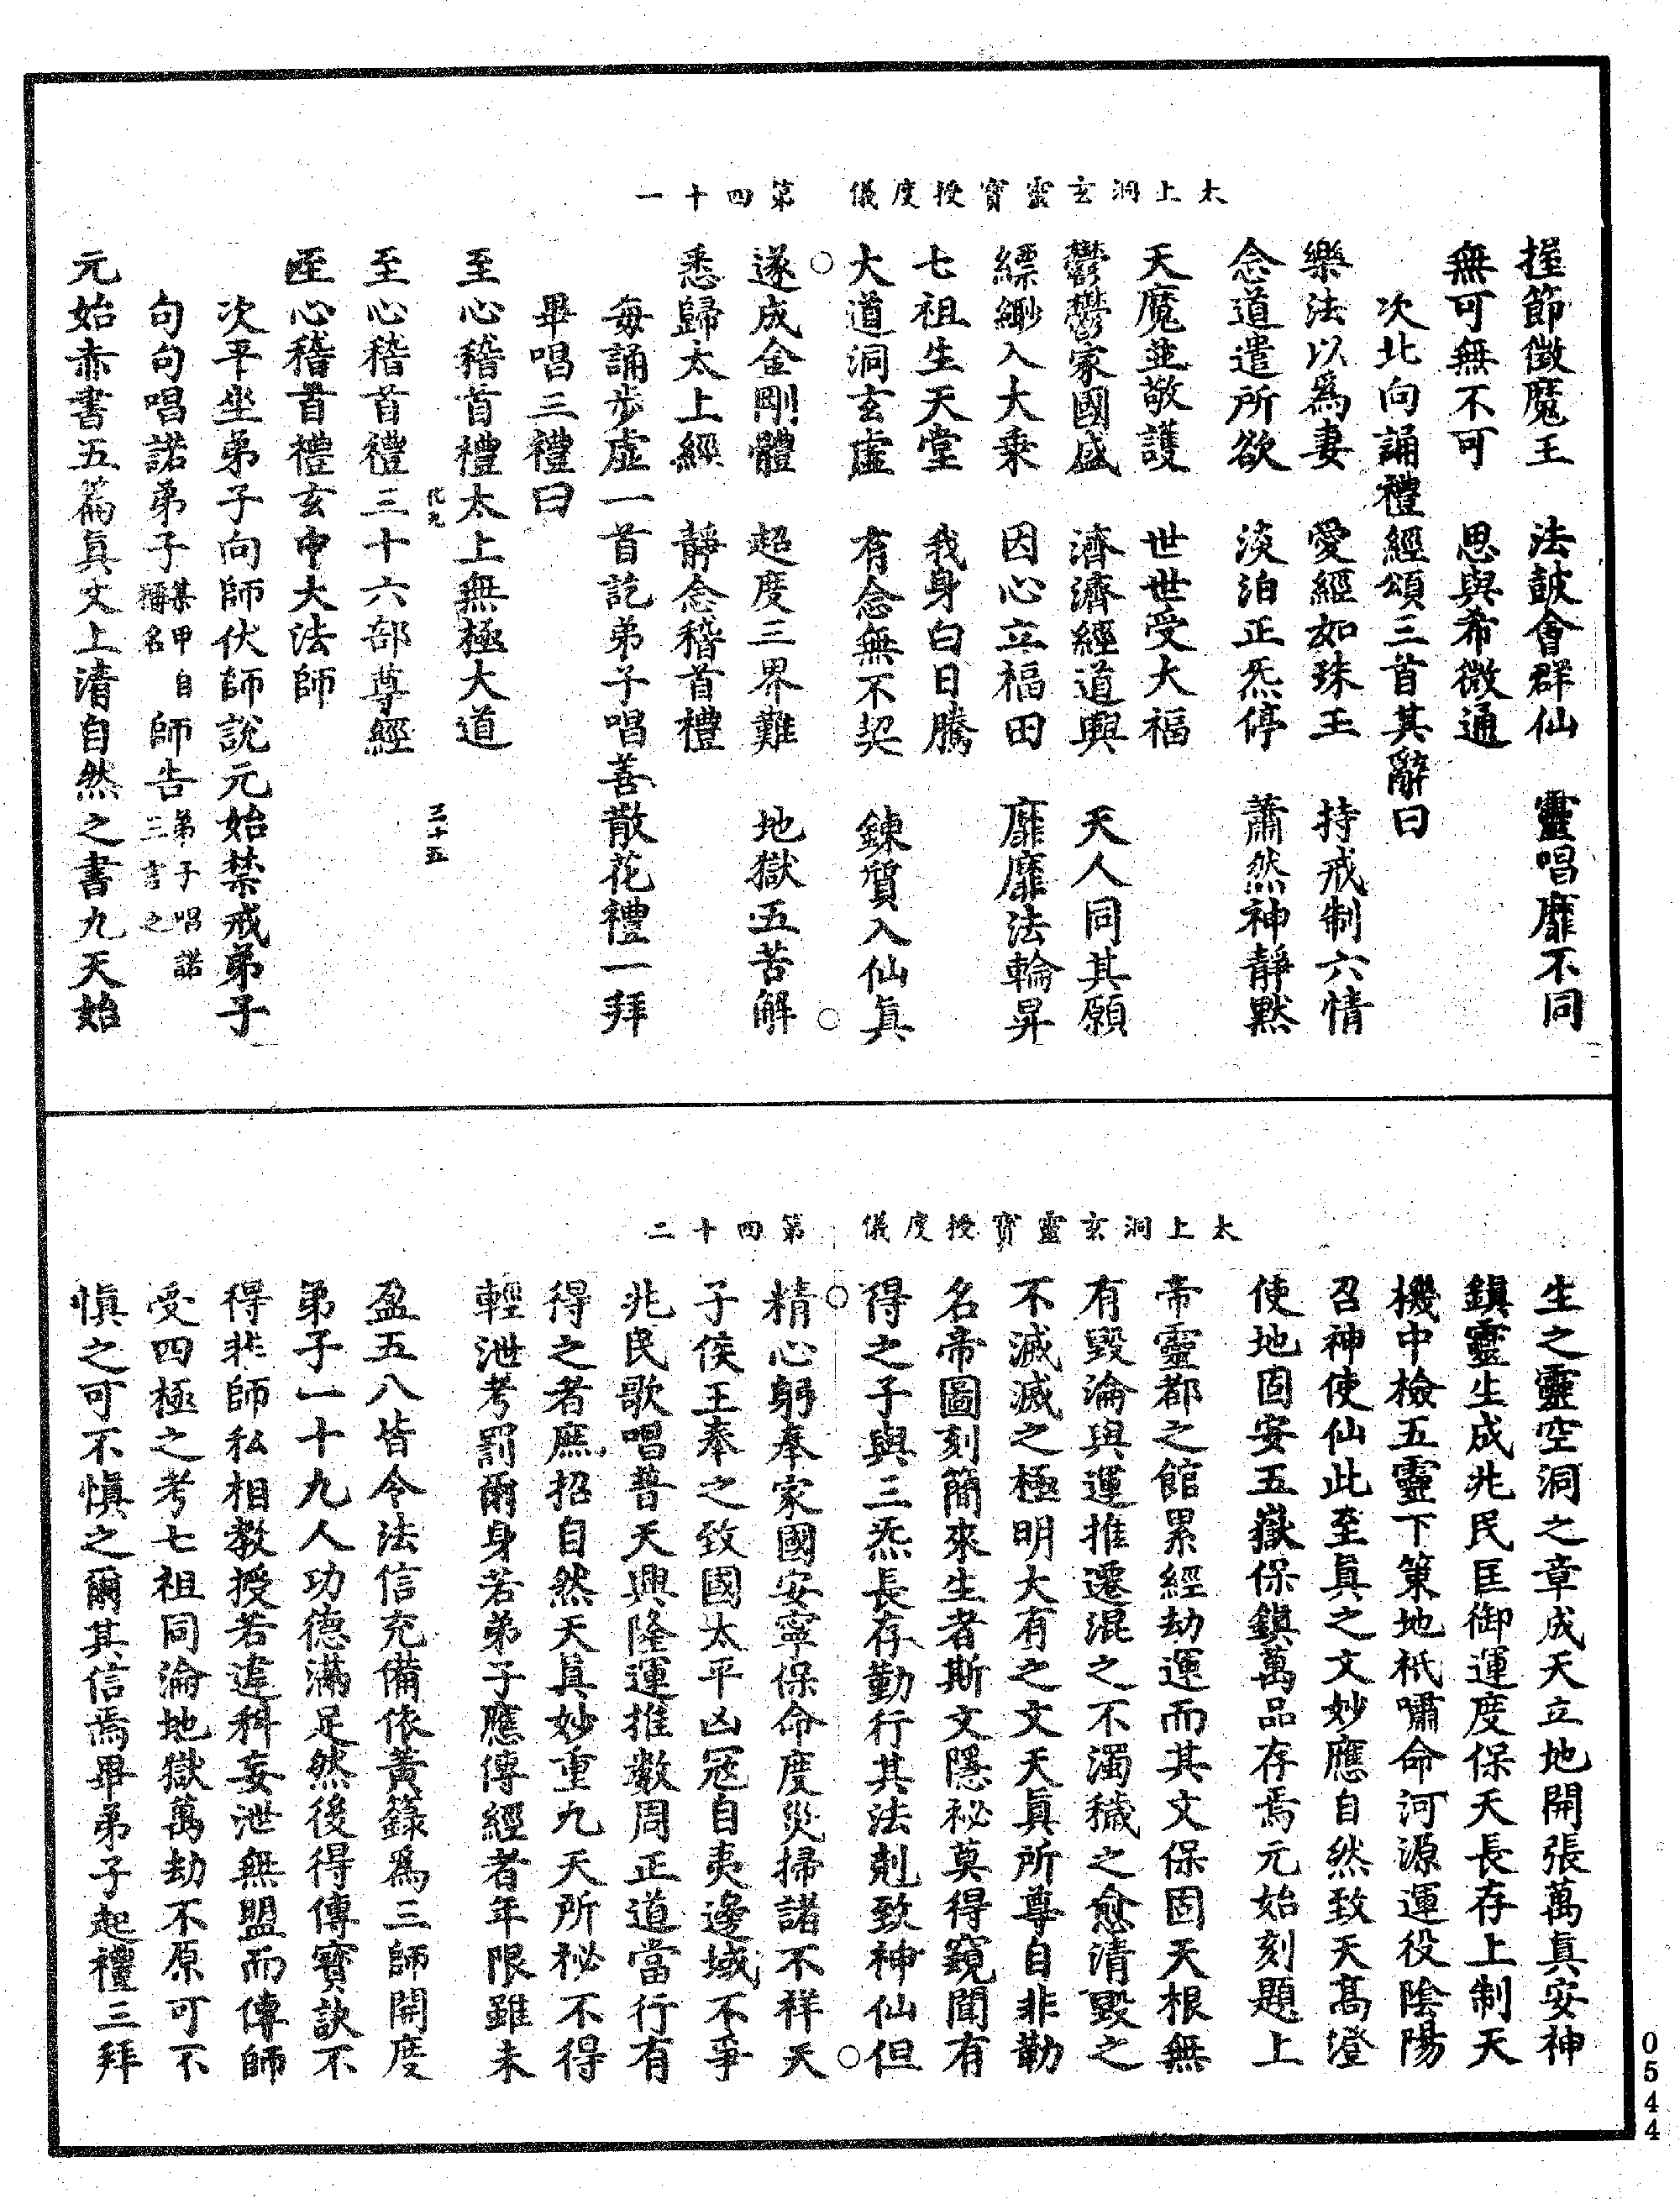 太上洞玄靈寶授度儀　第四十一
握節徵魔王　法鼓會群仙　靈唱靡不同
無可無不可　思與希微通
次北向誦禮經頌三首其辭曰
樂法以爲妻　愛經如珠玉　持戒制六情
念道遣所欲　淡泊正炁停　蕭然神靜默
天魔並敬護　世世受大福
鬱鬱家國盛　濟濟經道興　天人同其願
縹緲入大乘　因心立福田　靡靡法輪昇
七祖生天堂　我身白日騰
大道洞玄虛　有念無不契　鍊質入仙眞
遂成金剛體　超度三界難　地獄五苦解
悉歸太上經　靜念稽首禮
每誦步虛一首訖弟子唱善散花禮一拜
畢唱三禮曰
至心稽首禮太上無極大道
三十五
至心稽首禮三十六部尊經
至心稽首禮玄中大法師
次平坐弟子向師伏師說元始禁戒弟子
句句唱諾弟子某甲自稱名師告弟子唱諾三書之
元始赤書五篇眞文上清自然之書九天始
太上洞玄靈寶授度儀　第四十二
生之靈空洞之章成天立地開張萬眞安神
鎮靈生成兆民匡御運度保天長存上制天
機中檢五靈下策地祇嘯命河源運役陰陽
召神使仙此至眞之文妙應自然致天髙澄
使地固安五嶽保鎮萬品存焉元始刻題上
帝靈都之館累經劫運而其文保固天根無
有毀淪與運推遷混之不濁穢之愈清毀之
不滅滅之極明大有之文天眞所尊自非勤
名帝圖刻簡來生者斯文隱祕莫得窺聞有
得之子與三炁長存勤行其法剋致神仙但
精心躬奉家國安寧保命度災掃諸不祥天
子侯王奉之致國太平凶寇自夷邊城不爭
兆民歌唱普天興隆運推數周正道當行有
得之者庶招自然天眞妙重九天所祕不得
輕泄考罰爾身若弟子應傳經者年限雖未
盈五八皆令法信充備依黃籙爲三師開度
弟子一十九人功德滿足然後得傳寶訣不
得非師私相教授若違科妄泄無盟而傳師
受四極之考七祖同淪地獄萬劫不原可不
愼之可不愼之爾其信焉畢弟子起禮三拜
0544